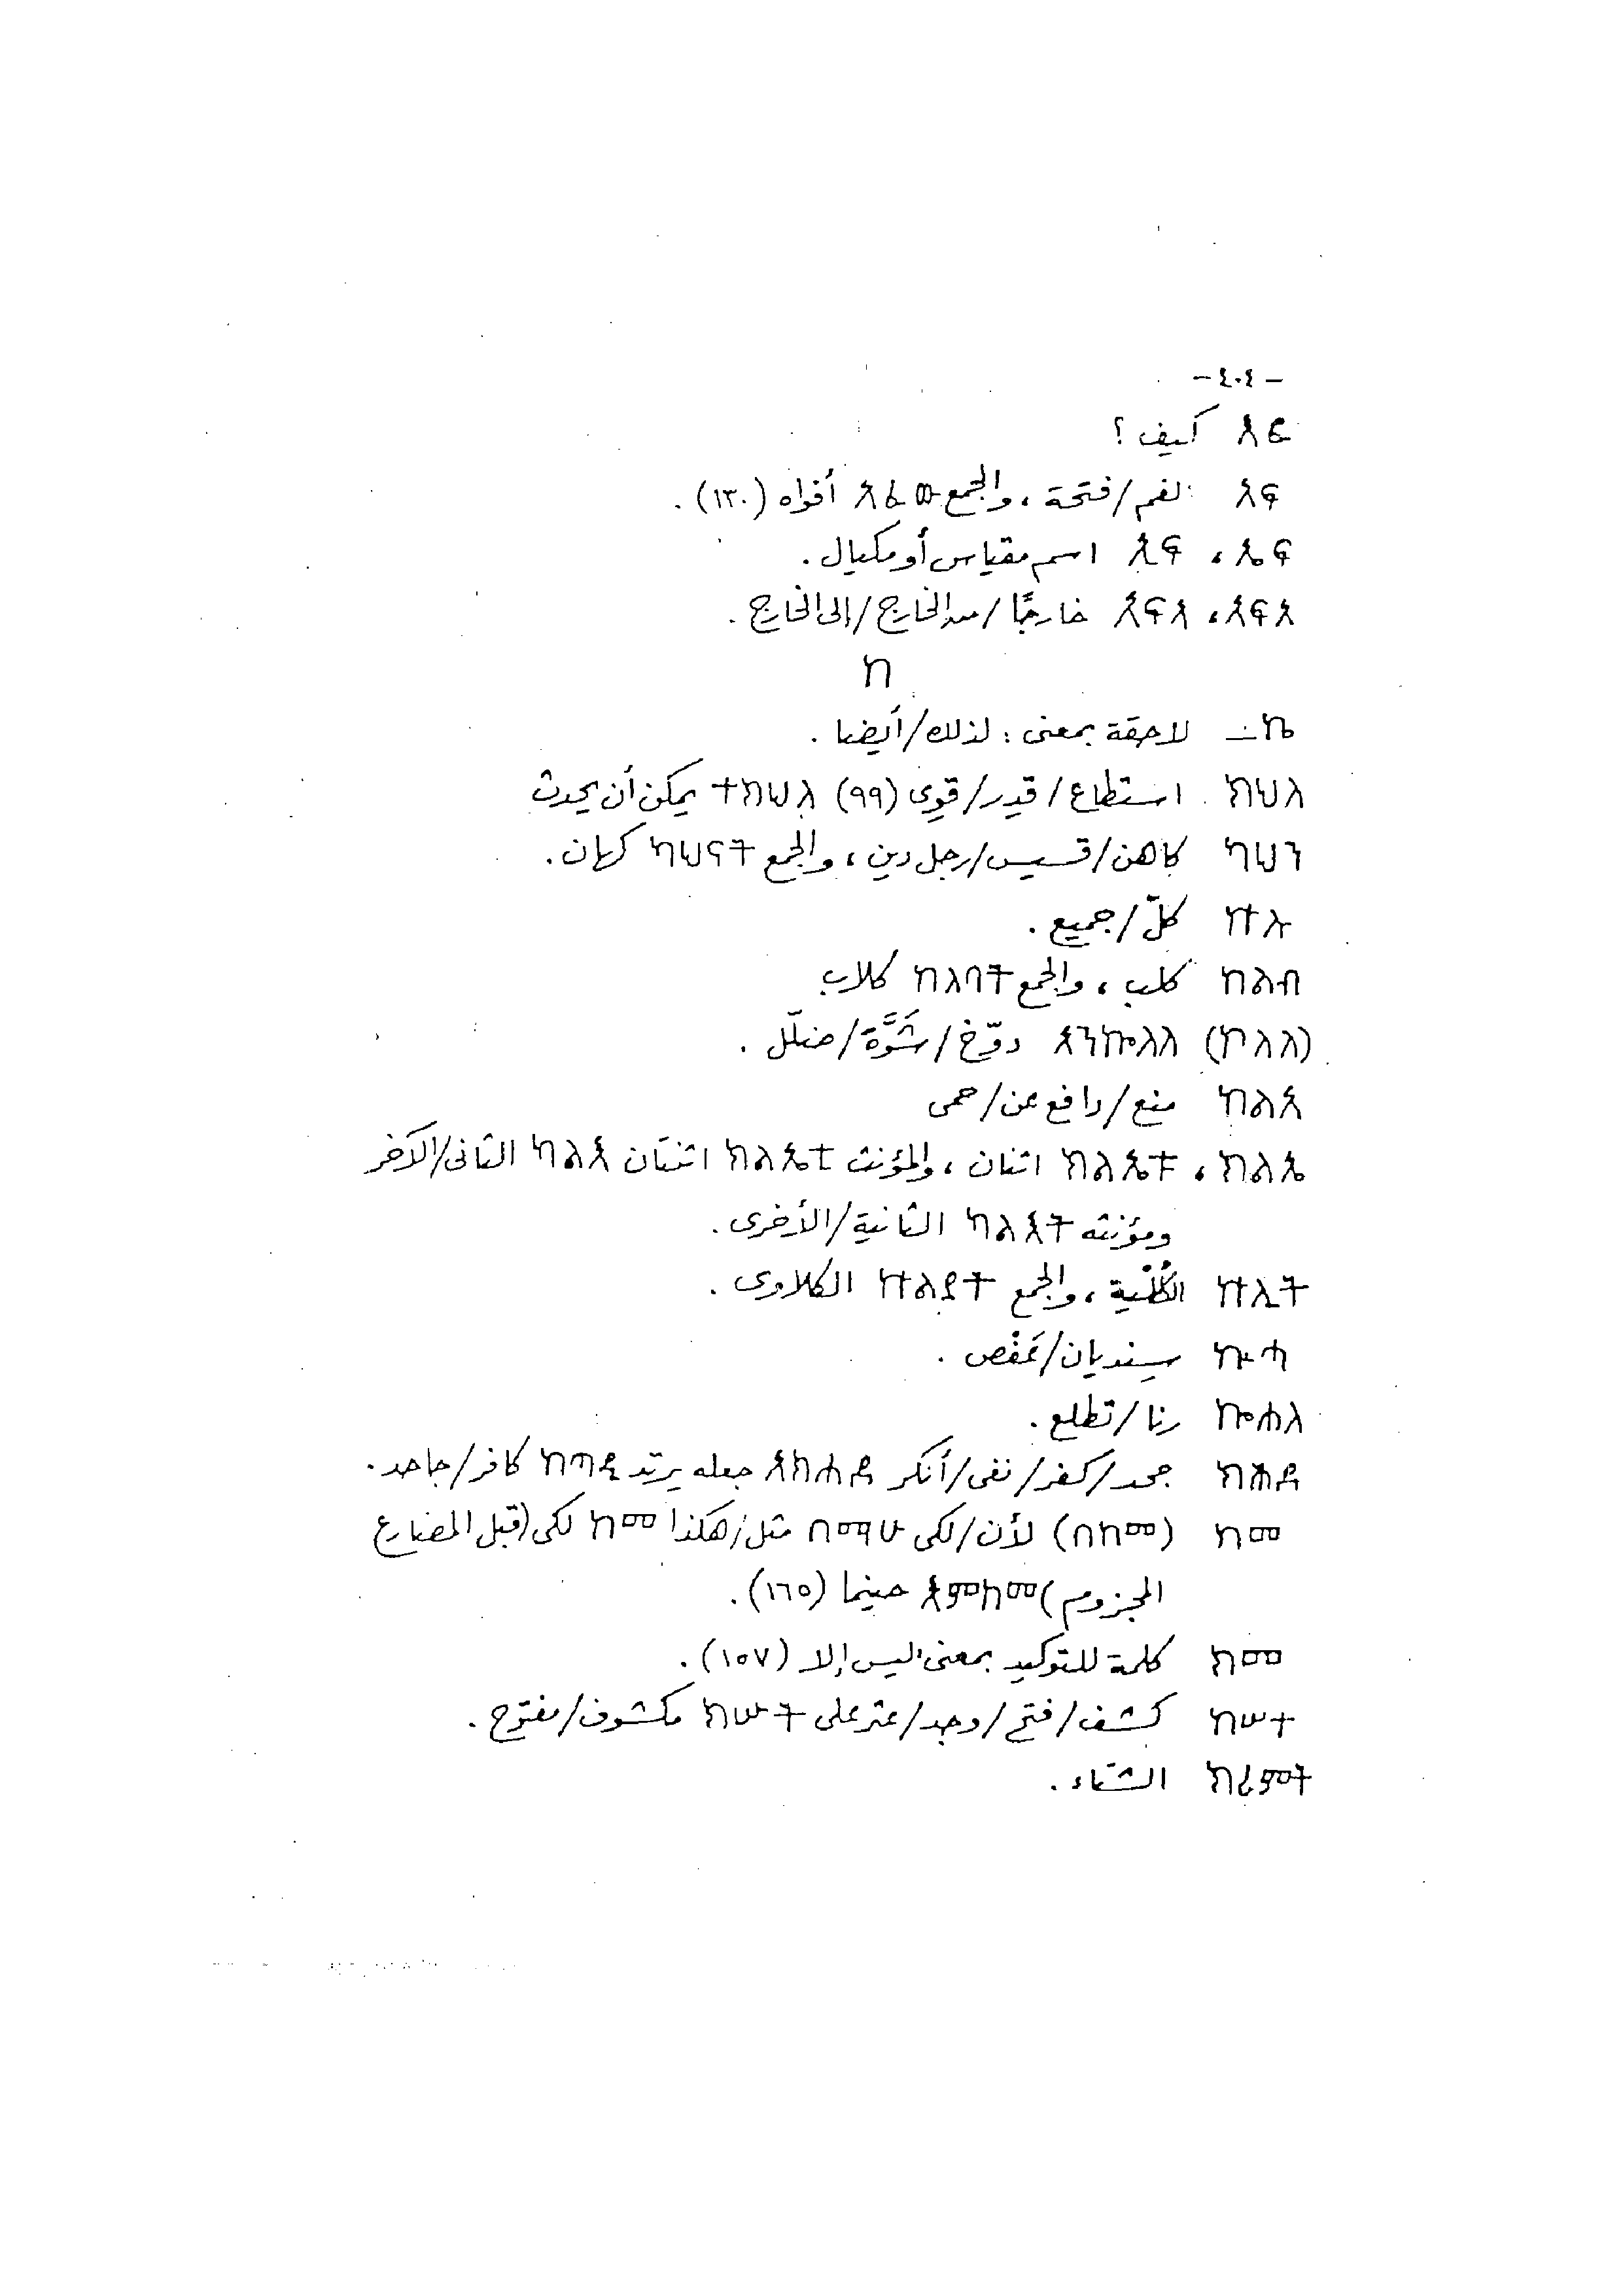 -٤٠٤-
እፎ كيف؟
አፍ الفم/فتحة، والجمع አፈው أفواه (١٣٠).
ኤፍ، ኢፍ اسم مقياس أو مكيال.
አፍአ، አፍኣ خارجًا/من الخارج/إلى الخارج.
ከ
-ኬ لاحقة بمعنى: لذلك/أيضا.
ክህለ استطاع/قدر/قوي (٩٩) ተክህለ يمكن أن يحدث
ካህን كاهن/قسيس/رجل دين، والجمع ካህናት كهان.
ኵሉ كلّ/جميع.
ከልብ كلب، والجمع ከለባት كلاب
(ከለለ) አንኮለለ دوّخ/شَوَّهَ/ضلّل.
ከልአ منع/دافع عن/حمى
ክልኤ، ክልኤቱ اثنان، والمؤنث ክልኤቲ اثنتان ካልእ الثاني/الآخر
ومؤنثه ካልእት الثانية/الأخرى.
ኵሊት الكُلْية، والجمع ኵልያት الكلاوى.
سِنديان/عَفْص.
رنا/تطلع.
ክሕደ جحد/كفر/نفى/أنكر አክሐደ جعله يرتد ከሓዲ كافر/جاحد.
ከመ (በከመ) لأن/لكي ከማሁ مثل/هكذا ከመ لكي (قبل المضارع
المجزوم) አምከመ حينما (١٦٥).
ክመ كلمة للتوكيد بمعنى ليس إلا (١٥٧).
ከሠተ كشف/فتح/وجد/عثر على ክሡት مكشوف/مفتوح.
ክረምት الشتاء.